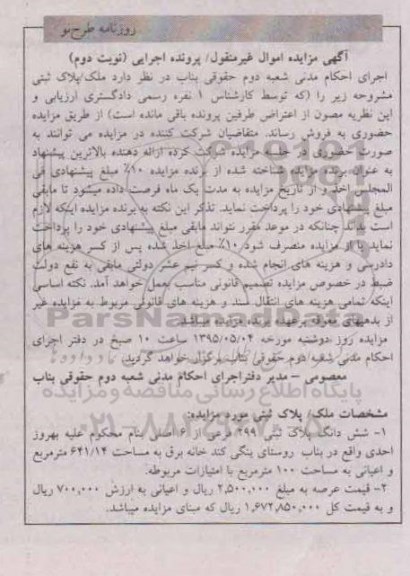 روزنامه طرح نو
آگهی مزایده اموال غیرمنقول/ پرونده اجرایی (نوبت دوم)
اجرای احکام مدنی شعبه دوم حقوقی بناب در نظر دارد ملک/پلاک ثبتی
مشروحه زیر را (که توسط کارشناس ۱ نفره رسمی دادگستری ارزیابی و
این نظریه مصون از اعتراض طرفین پرونده باقی مانده است) از طریق مزایده
حضوری به فروش رساند. متقاضیان شرکت کننده در مزایده می توانند به
صورت حضوری در جلسه مزایده شرکت کرده ارائه دهنده بالاترین پیشنهاد
به عنوان برنده مزایده شناخته شده از برنده مزایده ۱۰٪ مبلغ پیشنهادی فی
المجلس اخذ و از تاریخ مزایده به مدت یک ماه فرصت داده میشود تا مابقی
مبلغ پیشنهادی خود را پرداخت نماید. تذکر این نکته به برنده مزایده اینکه لازم
است بداند چنانکه در موعد مقرر نتواند مابقی مبلغ پیشنهادی خود را پرداخت
نماید یا از مزایده منصرف شود ۱۰٪ مبلغ اخذ شده پس از کسر هزینه های
دادرسی و هزینه های انجام شده و کسر نیم عشر دولتی مابقی به نفع دولت
ضبط در خصوص مزایده تصمیم قانونی مناسب بعمل خواهد آمد. نکته اساسی
اینکه تمامی هزینه های انتقال سند و هزینه های قانونی مربوط به مزایده غیر
از بدهیهای معوقه برعهده برنده مزایده میباشد.
ParsNamadData
مزایده روز دوشنبه مورخه ۱۳۹۵/۰۵/۰۴ ساعت ۱۰ صبح در دفتر اجرای
احکام مدنی شعبه دوم حقوقی بناب برگزار خواهد گردید.
معصومی – مدیر دفتراجرای احکام مدنی شعبه دوم حقوقی بناب
پایگاه اطلاع رسانی مناقصه و مزایده
مشخصات ملک/ پلاک ثبتی مورد مزایده:
۰۲۱-۸۸۳۴۹۶۷۰-۵
۱- شش دانگ پلاک ثبتی ۲۹۹ فرعی از ۶ اصلی بنام محکوم علیه بهروز
احدی واقع در بناب روستای ینگی کند خانه برق به مساحت ۶۴۱/۱۴ مترمربع
و اعیانی به مساحت ۱۰۰ مترمربع با امتیازات مربوطه.
۲- قیمت عرصه به مبلغ ۲,۵۰۰,۰۰۰ ریال و اعیانی به ارزش ۷۰۰,۰۰۰ ریال
و به قیمت کل ۱,۶۷۲,۸۵۰,۰۰۰ ریال که مبنای مزایده میباشد.